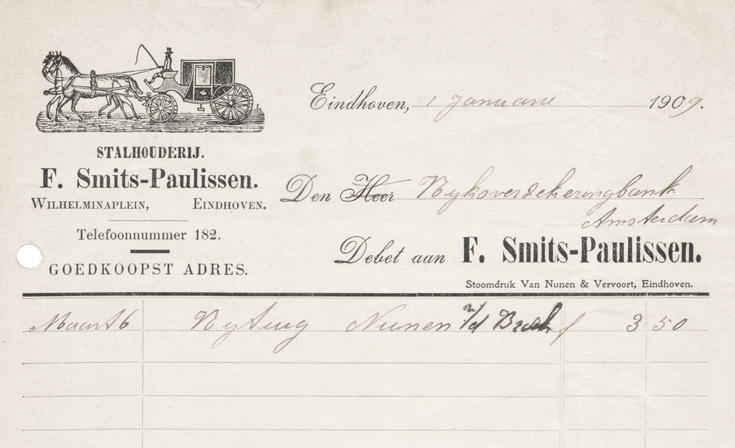 Eindhoven, 1 Januarie 1909.
STALHOUDERIJ.
F. Smits-Paulissen.
WILHELMINAPLEIN, EINDHOVEN.
Telefoonnummer 182.
GOEDKOOPST ADRES.
Den Heer Ryksverzekeringbank
Amsterdam
Debet aan F. Smits-Paulissen.
Stoomdruk Van Nunen & Vervoort, Eindhoven.
Maart 6 Rytuig Nunen f 3 50